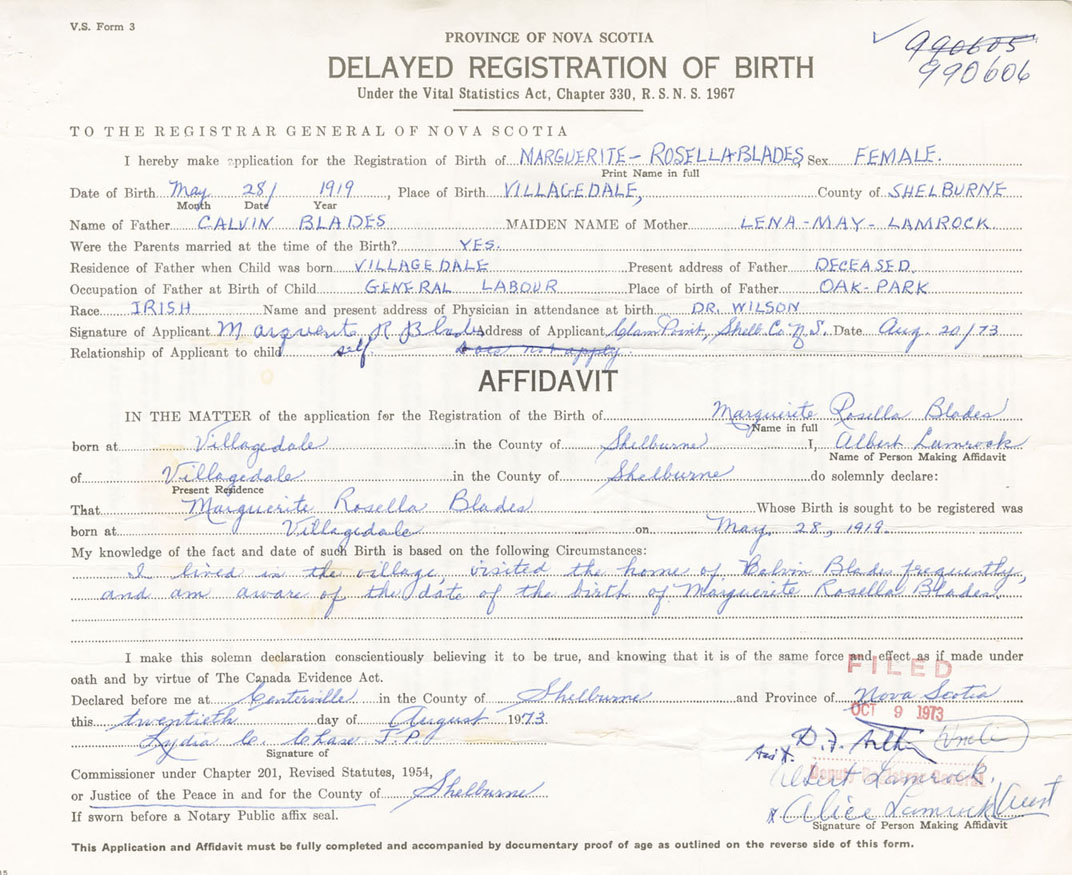 V.S. Form 3
PROVINCE OF NOVA SCOTIA
990605
990606
DELAYED REGISTRATION OF BIRTH
Under the Vital Statistics Act, Chapter 330, R.S.N.S. 1967
TO THE REGISTRAR GENERAL OF NOVA SCOTIA
I hereby make application for the Registration of Birth of MARGUERITE-ROSELLA-BLADES Sex FEMALE.
Print Name in full
Date of Birth May 28/ 1919, Place of Birth VILLAGEDALE, County of SHELBURNE
Month Date Year
Name of Father CALVIN BLADES MAIDEN NAME of Mother LENA-MAY-LAMROCK
Were the Parents married at the time of the Birth? YES.
Residence of Father when Child was born VILLAGEDALE Present address of Father DECEASED.
Occupation of Father at Birth of Child GENERAL LABOUR Place of birth of Father OAK-PARK
Race IRISH Name and present address of Physician in attendance at birth DR. WILSON
Signature of Applicant Marguerite R Blades Address of Applicant Clam Point, Shelb. Co. N.S. Date Aug. 20/73
Relationship of Applicant to child self. does not apply
AFFIDAVIT
IN THE MATTER of the application for the Registration of the Birth of Marguerite Rosella Blades
Name in full
born at Villagedale in the County of Shelburne I, Albert Lamrock
Name of Person Making Affidavit
of Villagedale in the County of Shelburne do solemnly declare:
Present Residence
That Marguerite Rosella Blades Whose Birth is sought to be registered was
born at Villagedale on May. 28, 1919.
My knowledge of the fact and date of such Birth is based on the following Circumstances:
I lived in the village, visited the home of Calvin Blades frequently,
and am aware of the date of the birth of Marguerite Rosella Blades.
I make this solemn declaration conscientiously believing it to be true, and knowing that it is of the same force and effect as if made under
FILED
oath and by virtue of The Canada Evidence Act.
Declared before me at Centerville in the County of Shelburne and Province of Nova Scotia
OCT 9 1973
this twentieth day of August 1973.
Lydia C. Chase J.P.
Signature of
D.F.
Commissioner under Chapter 201, Revised Statutes, 1954,
Albert Lamrock.
or Justice of the Peace in and for the County of Shelburne
x Alice Lamrock
If sworn before a Notary Public affix seal.
Signature of Person Making Affidavit
This Application and Affidavit must be fully completed and accompanied by documentary proof of age as outlined on the reverse side of this form.